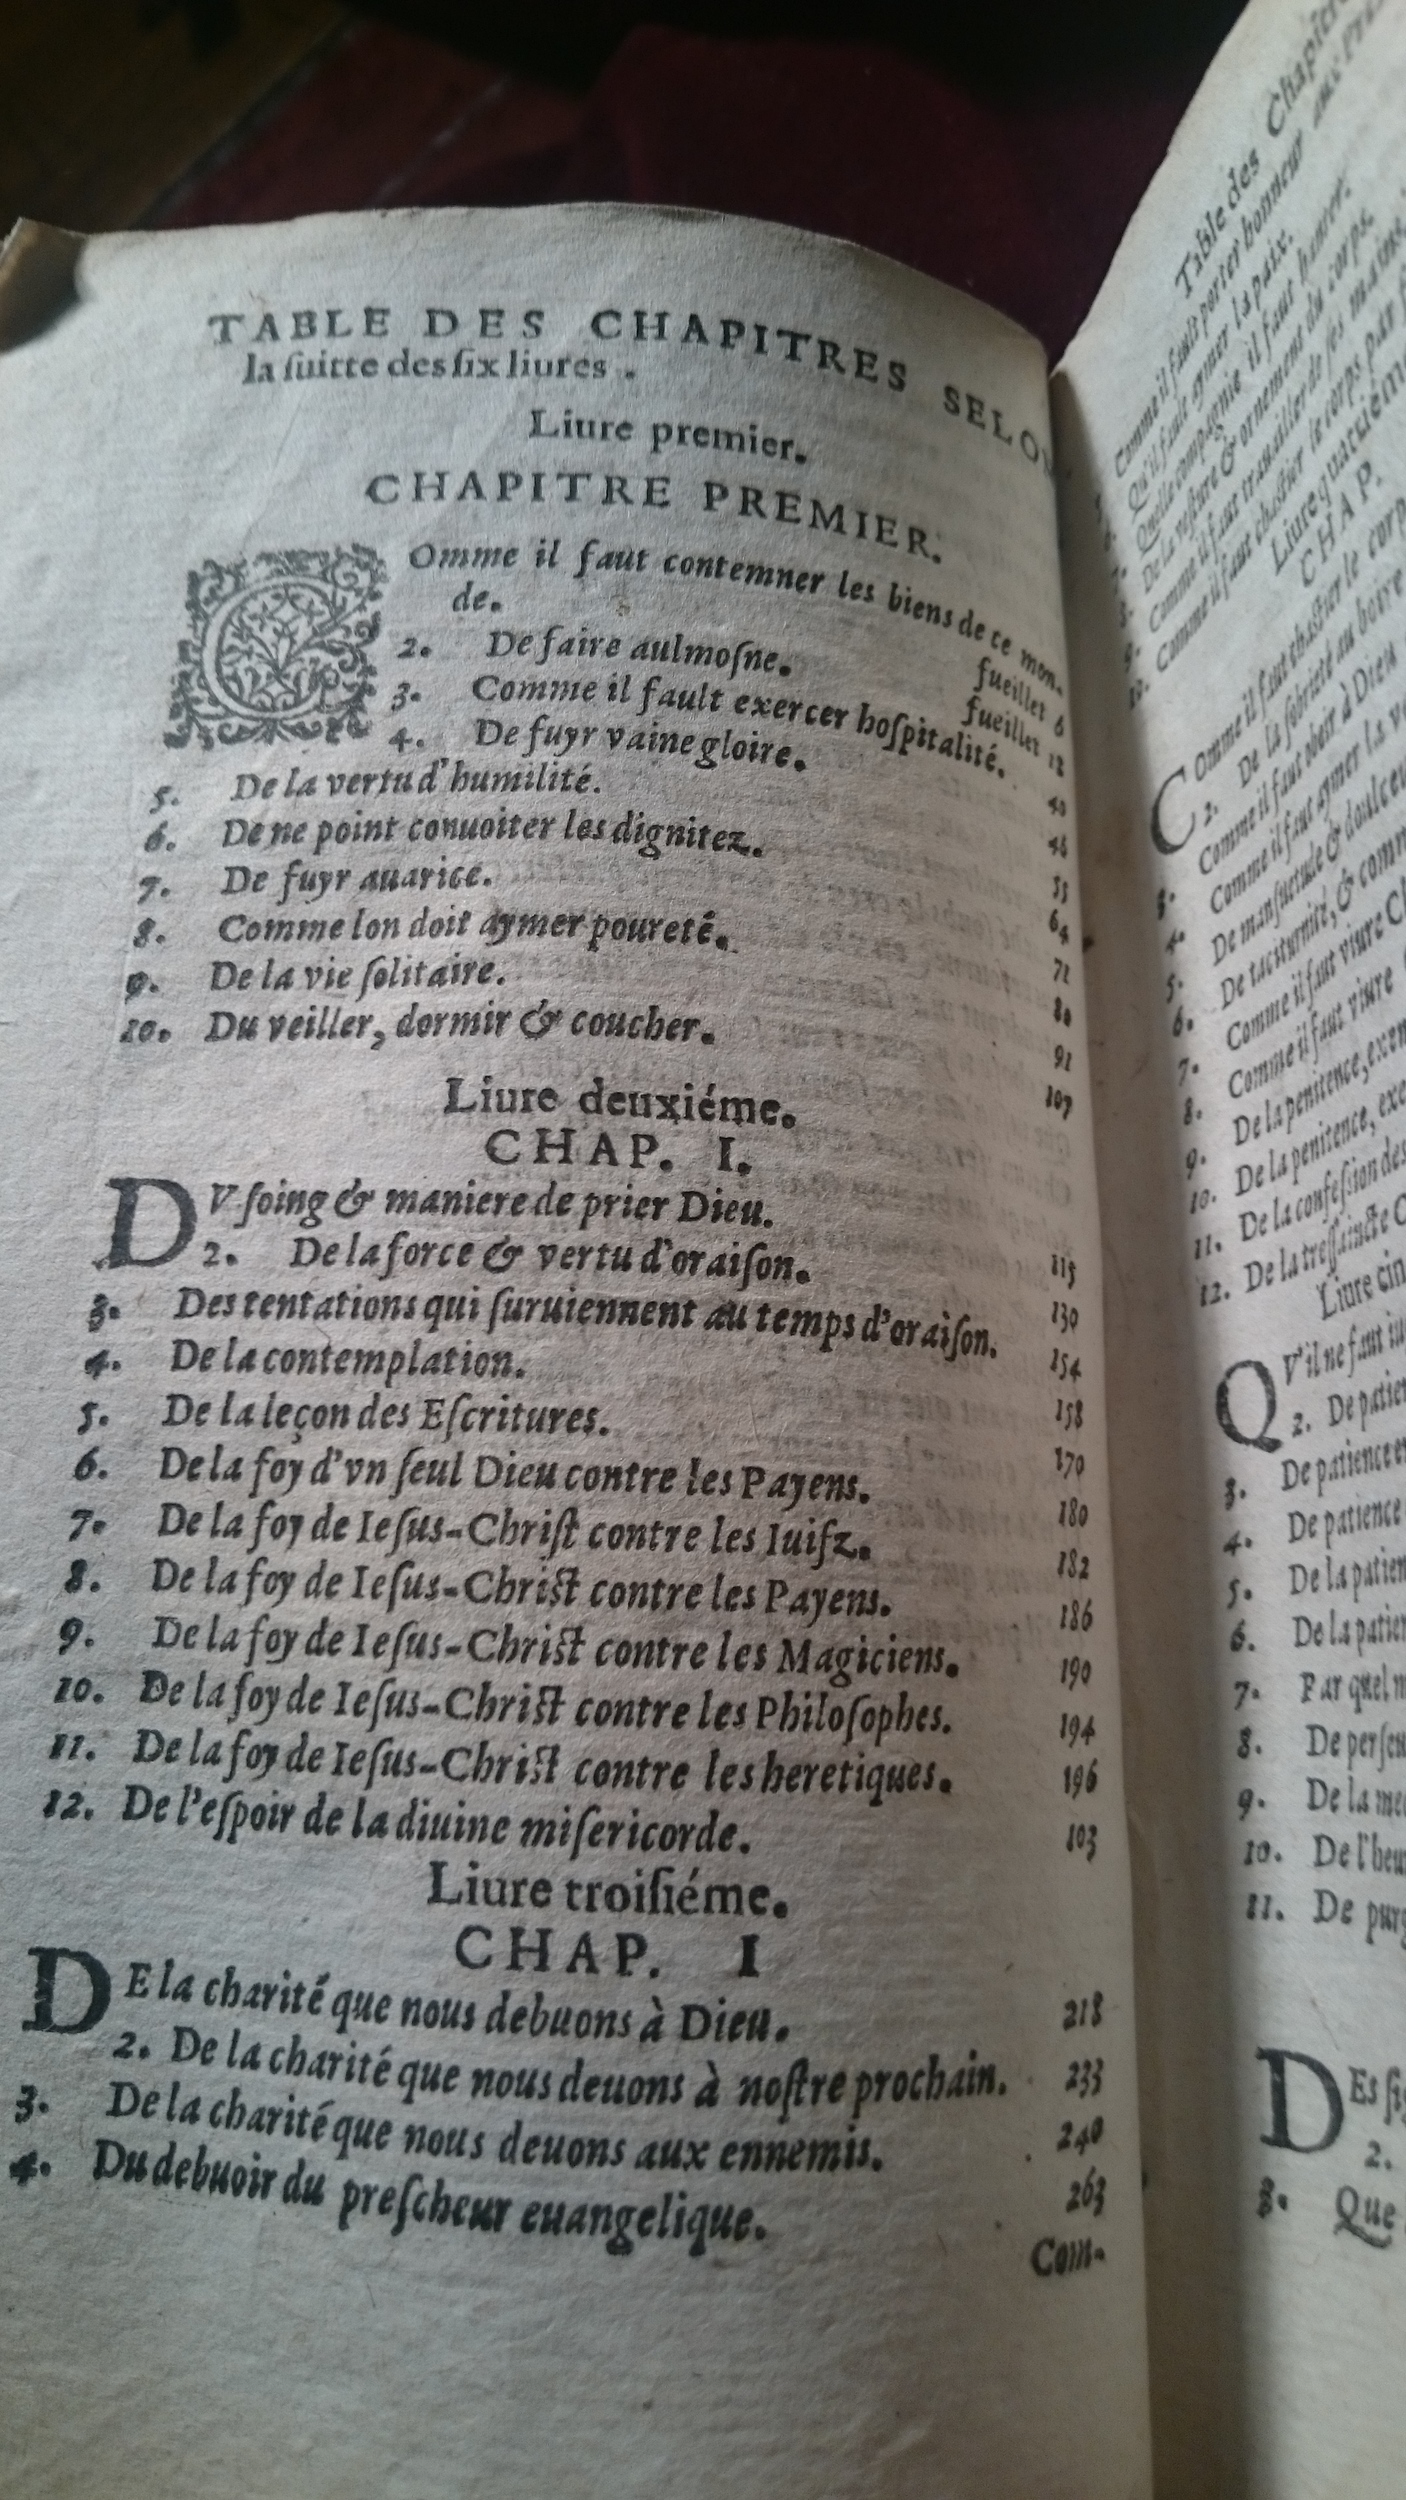 TABLE DES CHAPITRES SELO
la ſuitte des ſix liures .
Liure premier.
CHAPITRE PREMIER.
COmme il faut contemner les biens de ce mon-
de. fueillet 6
2. De faire aulmoſne. fueillet 12
3. Comme il fault exercer hoſpitalité. 40
4. De fuyr vaine gloire. 46
5. De la vertu d'humilité. 55
6. De ne point conuoiter les dignitez. 64
7. De fuyr auarice. 71
8. Comme lon doit aymer poureté. 80
9. De la vie ſolitaire. 91
10. Du veiller, dormir & coucher. 107
Liure deuxiéme.
CHAP. I.
DV ſoing & maniere de prier Dieu. 115
2. De la force & vertu d'oraiſon. 130
3. Des tentations qui ſuruiennent au temps d'oraiſon. 154
4. De la contemplation. 158
5. De la leçon des Eſcritures. 170
6. De la foy d'vn ſeul Dieu contre les Payens. 180
7. De la foy de Ieſus-Chriſt contre les Iuifz. 182
8. De la foy de Ieſus-Chriſt contre les Payens. 186
9. De la foy de Ieſus-Chriſt contre les Magiciens. 190
10. De la foy de Ieſus-Chriſt contre les Philoſophes. 194
11. De la foy de Ieſus-Chriſt contre les heretiques. 196
12. De l'eſpoir de la diuine miſericorde. 103
Liure troiſiéme.
CHAP. I
DE la charité que nous debuons à Dieu. 218
2. De la charité que nous deuons à noſtre prochain. 233
3. De la charité que nous deuons aux ennemis. 240
4. Du debuoir du preſcheur euangelique. 263
Com-
Table des Chapitre
Comme il fault porter honneur aux
Qu'il fault aymer la paix.
Quelle compagnie il faut hanter.
De la veſture & ornement du corps.
Comme il faut trauailler de ſes mains
10. Comme il faut chaſtier le corps par
Liure quatriém
CHAP.
COmme il faut chaſtier le corp
2. De la ſobrieté au boire
3. Comme il faut obeir à Dieu
4. Comme il faut aymer la
5. De manſuetude & doulceu
6. De taciturnité, & comm
7. Comme il faut viure Ch
8. Comme il faut viure
9. De la penitence, exem
10. De la penitence, exe
11. De la confeſsion des
12. De la treſſaincte C
Liure cin
QV'il ne faut iu
2. De patien
3. De patience en
4. De patience
5. De la patien
6. De la patien
7. Par quel m
8. De perſeu
9. De la me
10. De l'heu
11. De purg
DEs ſi
2.
3. Que